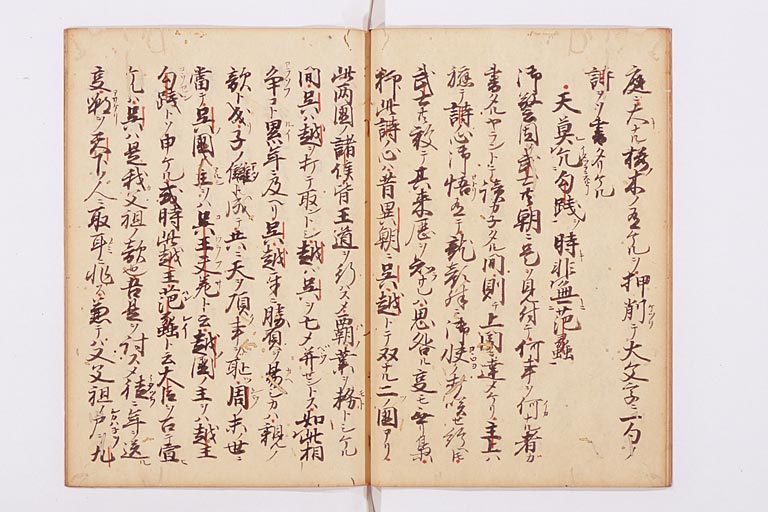 庭ニ大ナル桜木ノ有ケルヲ押削テ大文字ニ一句ノ
詩ヲソ書付ケル
天莫空勾践時非無范蠡
御警固ノ武士共朝ニ是ヲ見付テ何事ヲ何ル者カ
書タルヤラントテ読カ子タル間則チ上聞ニ達メケリ主上ハ
軈テ詩ノ心ヲ御悟有テ龍顔殊ニ御快ク打咲セ給ヘ
武士共ハ敢テ其来歴ヲ不知思咎ル事モ無リ
抑此詩ノ心ハ昔異朝ニ呉越トテ双ナル二ノ国アリ
此両国ノ諸侯皆王道ヲ行ハスメ覇業ヲ務トシケル
間呉ハ越ヲ打テ取ントシ越ハ呉ヲ亡メ并セントス如此相
争コト累年ニ及ヘリ呉越牙ニ勝負ヲ易シカハ親ノ
敵ト成子ノ讎ト成テ共ニ天ヲ頂事ヲ恥周末世ニ
當テ呉国ノ主ヲハ呉王夫差ト云越国ノ主ヲハ越王
勾践トソ申ケル或時此越王范蠡ト云大臣ヲ召テ宣
ケルハ呉ハ是我父祖ノ敵也吾是ヲ討スメ徒ニ年送ル
事嘲ヲ天下ノ人ニ取耳ニ非ス兼テハ父祖ノ尸ヲ九